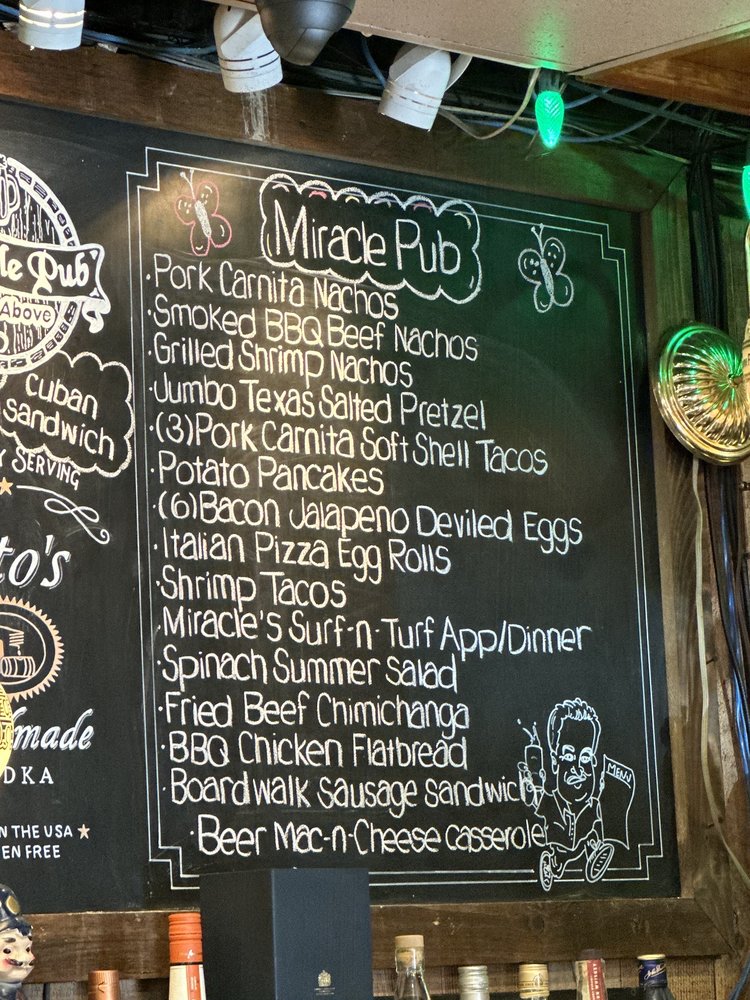 le Pub
Above
cuban
sandwich
Y SERVING
to's
made
DKA
N THE USA
EN FREE
Miracle Pub
·Pork Carnita Nachos
·Smoked BBQ Beef Nachos
·Grilled Shrimp Nachos
·Jumbo Texas Salted Pretzel
·(3)Pork Carnita Soft Shell Tacos
·Potato Pancakes
·(6)Bacon Jalapeno Deviled Eggs
·Italian Pizza Egg Rolls
·Shrimp Tacos
·Miracle's Surf-n-Turf App/Dinner
·Spinach Summer Salad
·Fried Beef Chimichanga
·BBQ Chicken Flatbread
·Boardwalk Sausage Sandwich
·Beer Mac-n-Cheese casserole
MENU